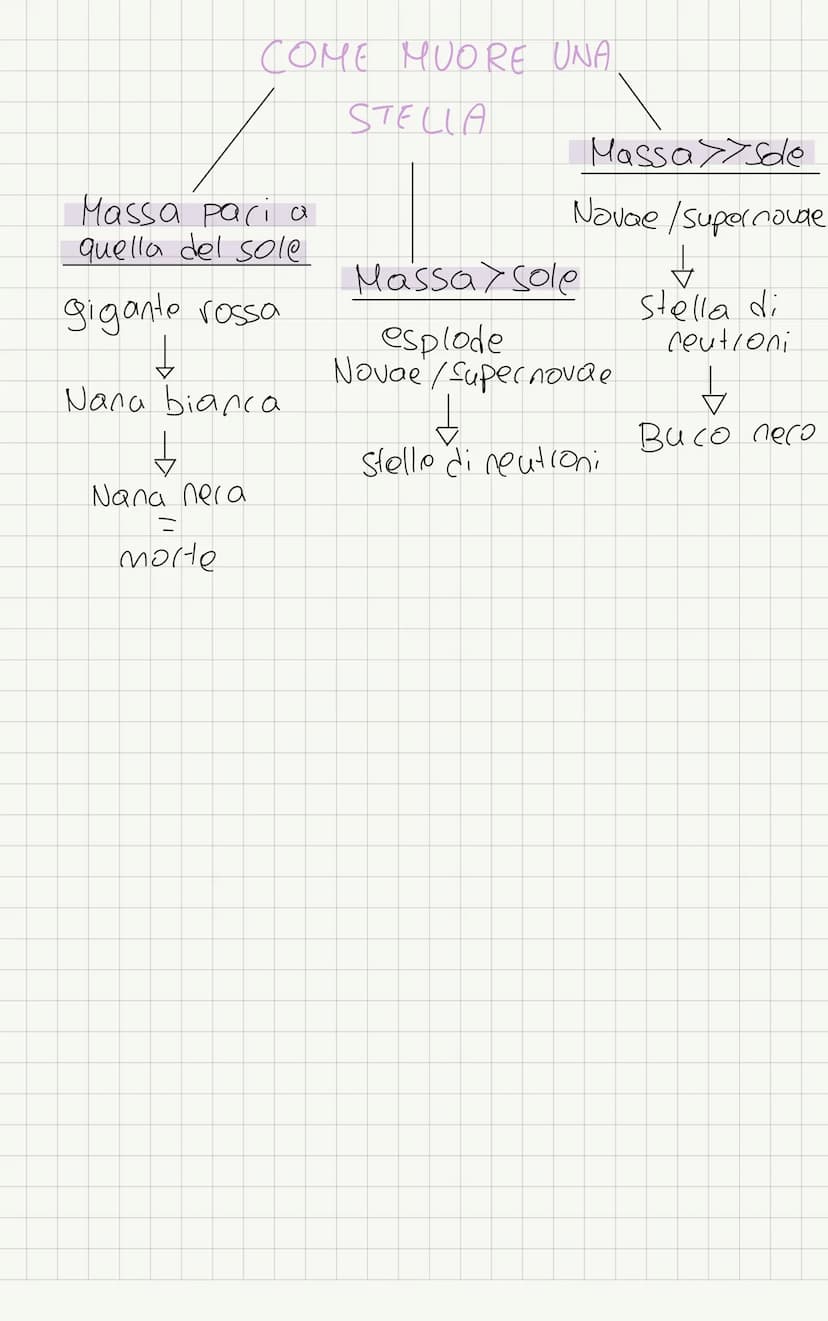 COME MUORE UNA
STELLA
Massa pari a
quella del sole
gigante rossa
Nana bianca
Nana nera
=
morte
Massa > sole
esplode
Novae / supernovae
Stella di neutroni
Massa >> Sole
Novae / supernovae
Stella di
neutroni
Buco nero